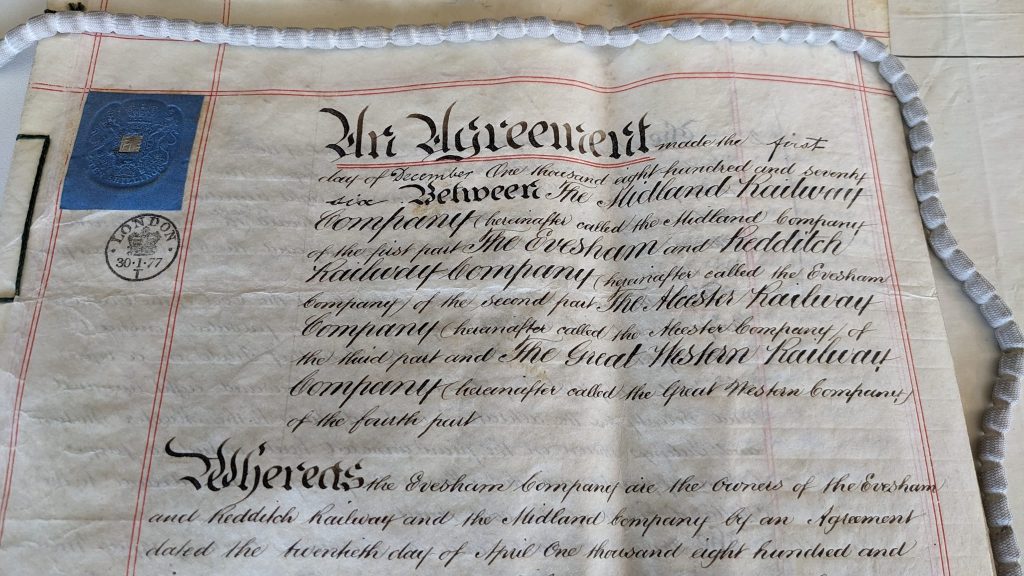 An Agreement made the first
day of December One thousand eight hundred and seventy
six Between The Midland Railway
Company (hereinafter called the Midland Company
of the first part The Evesham and Redditch
Railway Company (hereinafter called the Evesham
Company) of the second part The Alcester Railway
Company (hereinafter called the Alcester Company) of
the third part and The Great Western Railway
Company (hereinafter called the Great Western Company)
of the fourth part
LONDON
30·1·77
Whereas the Evesham Company are the owners of the Evesham
and Redditch Railway and the Midland Company by an Agreement
dated the twentieth day of April One thousand eight hundred and